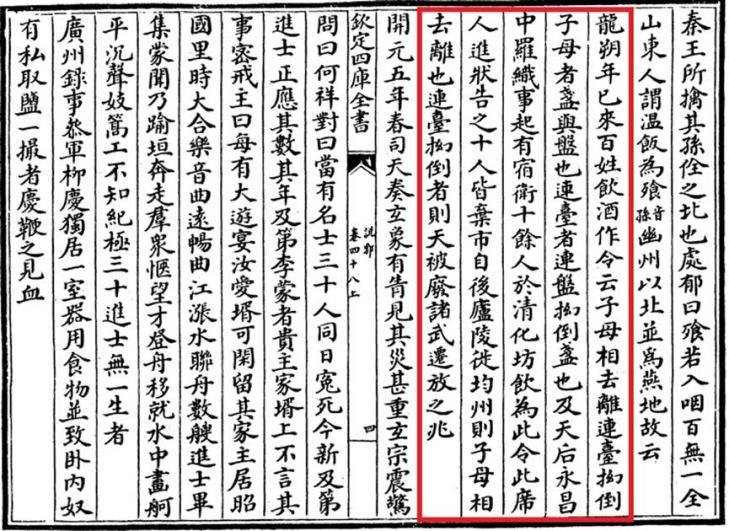 秦王所擒其孫佺之北也處郁曰飱若入咽百無一全
山東人謂温飯為飱音孫幽州以北並為燕地故云
龍朔年已來百姓飲酒作令云子母相去離連臺拗倒
子母者盞與盤也連臺者連盤拗倒盞也及天后永昌
中羅織事起有宿衛十餘人於清化坊飲為此令此席
人進狀告之十人皆棄市自後廬陵徙均州則子母相
去離也連臺拗倒者則天被廢諸武遷放之兆
開元五年春司天奏玄象有眚見其災甚重玄宗震驚
欽定四庫全書
說郛
卷四十八上
四
問曰何祥對曰當有名士三十人同日寃死今新及第
進士正應其數其年及第李蒙者貴主家壻上不言其
事密戒主曰每有大遊宴汝愛壻可閑留其家主居昭
國里時大合樂音曲遠暢曲江漲水聯舟數艘進士畢
集蒙聞乃踰垣奔走羣衆愜望才登舟移就水中畫舸
平沉聲妓篙工不知紀極三十進士無一生者
廣州錄事叅軍柳慶獨居一室器用食物並致卧内奴
有私取鹽一撮者慶鞭之見血